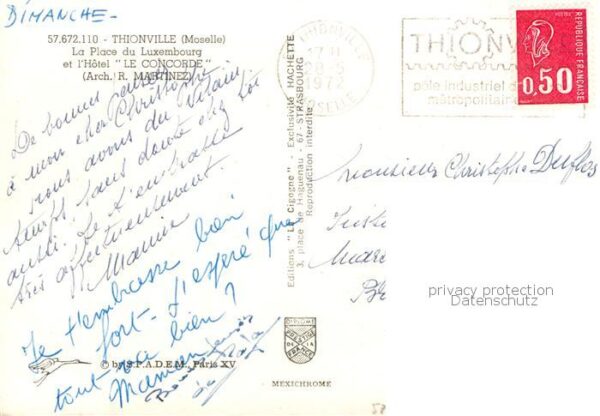 DIMANCHE-
57.672.110 - THIONVILLE (Moselle)
La Place du Luxembourg
et l'Hôtel "LE CONCORDE"
(Arch. R. MARTINEZ)
De bonnes pensées
à mon cher Christophe
nous avons du vilain
temps, sans doute chez toi
aussi. Je t'embrasse
très affectueusement.
Mamie
Je t'embrasse bien
fort - J'espère que
tout va bien ?
Maman
© by S.P.A.D.E.M., Paris XV
Editions "La Cigogne" - Exclusivité HACHETTE
3, place de Haguenau - 67 - STRASBOURG
Reproduction interdite
DIPLOME
PRESTIGE
DE LA
FRANCE
MEXICHROME
THIONVILLE
17 H
1972
MOSELLE
THIONVILLE
pôle industriel
métropolitain
REPUBLIQUE FRANCAISE
0,50
Monsieur Christophe Duflos
privacy protection
Datenschutz